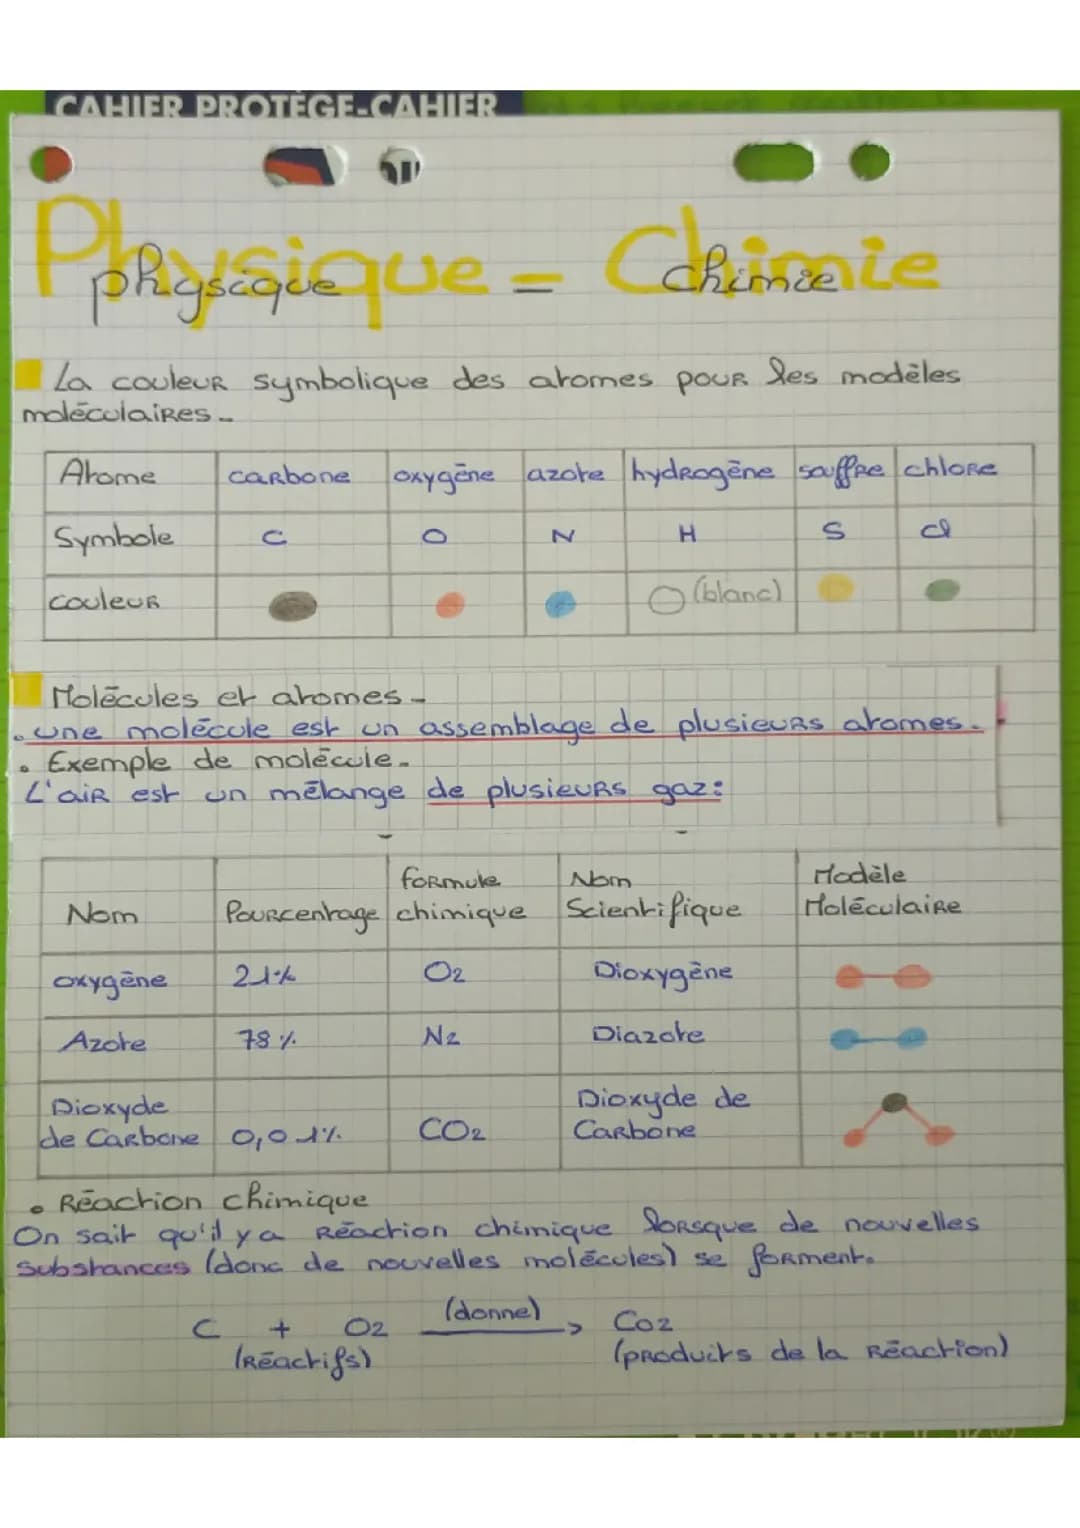 CAHIER PROTÈGE-CAHIER
Physique - Chimie
physique chimie
La couleur symbolique des atomes pour les modèles
moléculaires.
Atome carbone oxygène azote hydrogène souffre chlore
Symbole C O N H S Cl
Couleur (blanc)
Molécules et atomes.
. une molécule est un assemblage de plusieurs atomes.
. Exemple de molécule.
L'air est un mélange de plusieurs gaz:
Nom Pourcentage formule chimique Nom Scientifique Modèle Moléculaire
oxygène 21% O2 Dioxygène
Azote 78% N2 Diazote
Dioxyde de Carbone 0,01% CO2 Dioxyde de Carbone
• Réaction chimique
On sait qu'il y a Réaction chimique lorsque de nouvelles
substances (donc de nouvelles molécules) se forment.
C + O2 (donne) → CO2
(Réactifs) (produits de la Réaction)